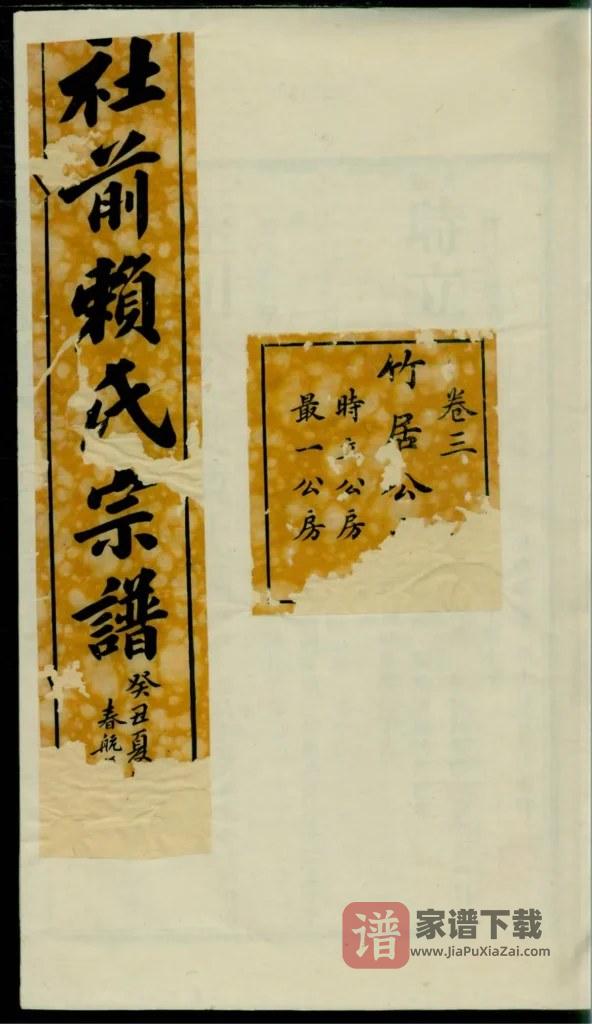 社前賴氏宗譜
癸丑夏
春航
卷三
竹居公
時公房
最一公房
谱
家谱下载
www.JiaPuXiaZai.com